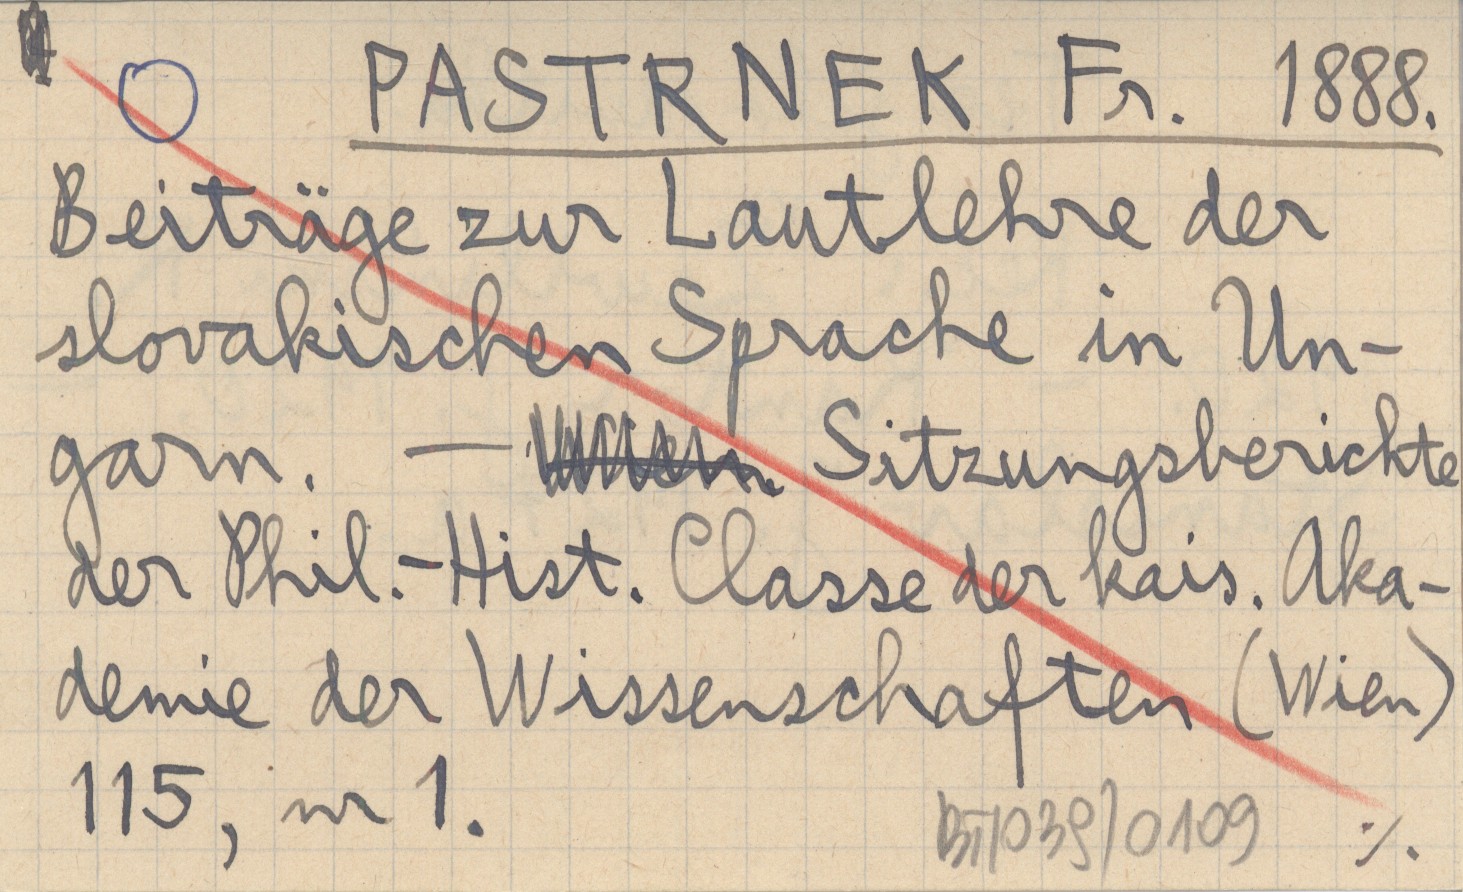 PASTRNEK Fr. 1888.
Beiträge zur Lautlehre der
slovakischen Sprache in Un-
garn. — Sitzungsberichte
der Phil.-Hist. Classe der kais. Aka-
demie der Wissenschaften (Wien)
115, nr 1.
BT/039/0109 ·/.